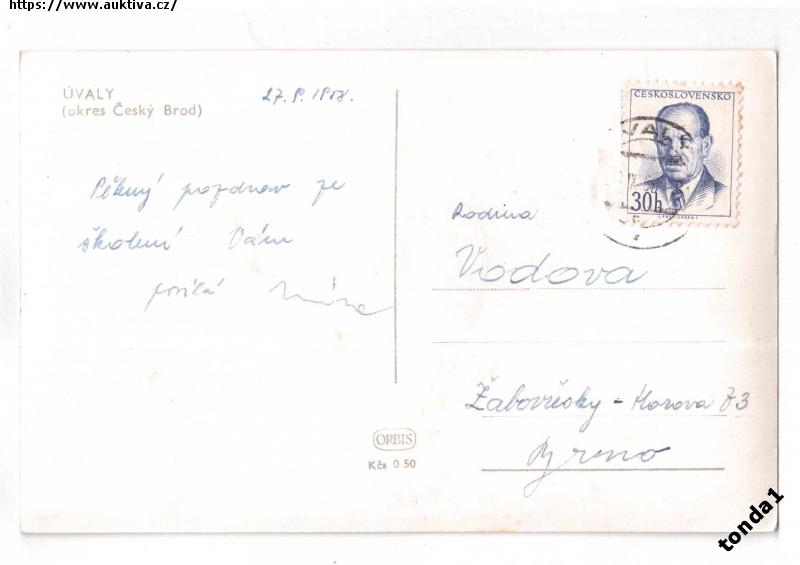 https://www.auktiva.cz/
ÚVALY
(okres Český Brod)
27. 8. 1958.
Pěkný pozdrav ze
školení Vám
posílá
ČESKOSLOVENSKO
30h
ÚVALY
Rodina
Vodova
Žabovřesky - Horova 73
Brno
ORBIS
Kčs 0 50
tonda1